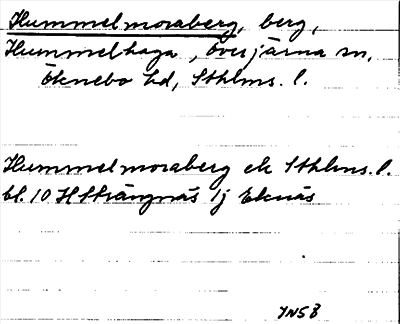 Hummelmoraberg, berg,
Hummelhaga, Överjärna sn,
Öknebo hd, Sthlms. l.
Hummelmoraberg ek Sthlms. l.
bl. 10 H Strängnäs 1j Eknäs
JN53